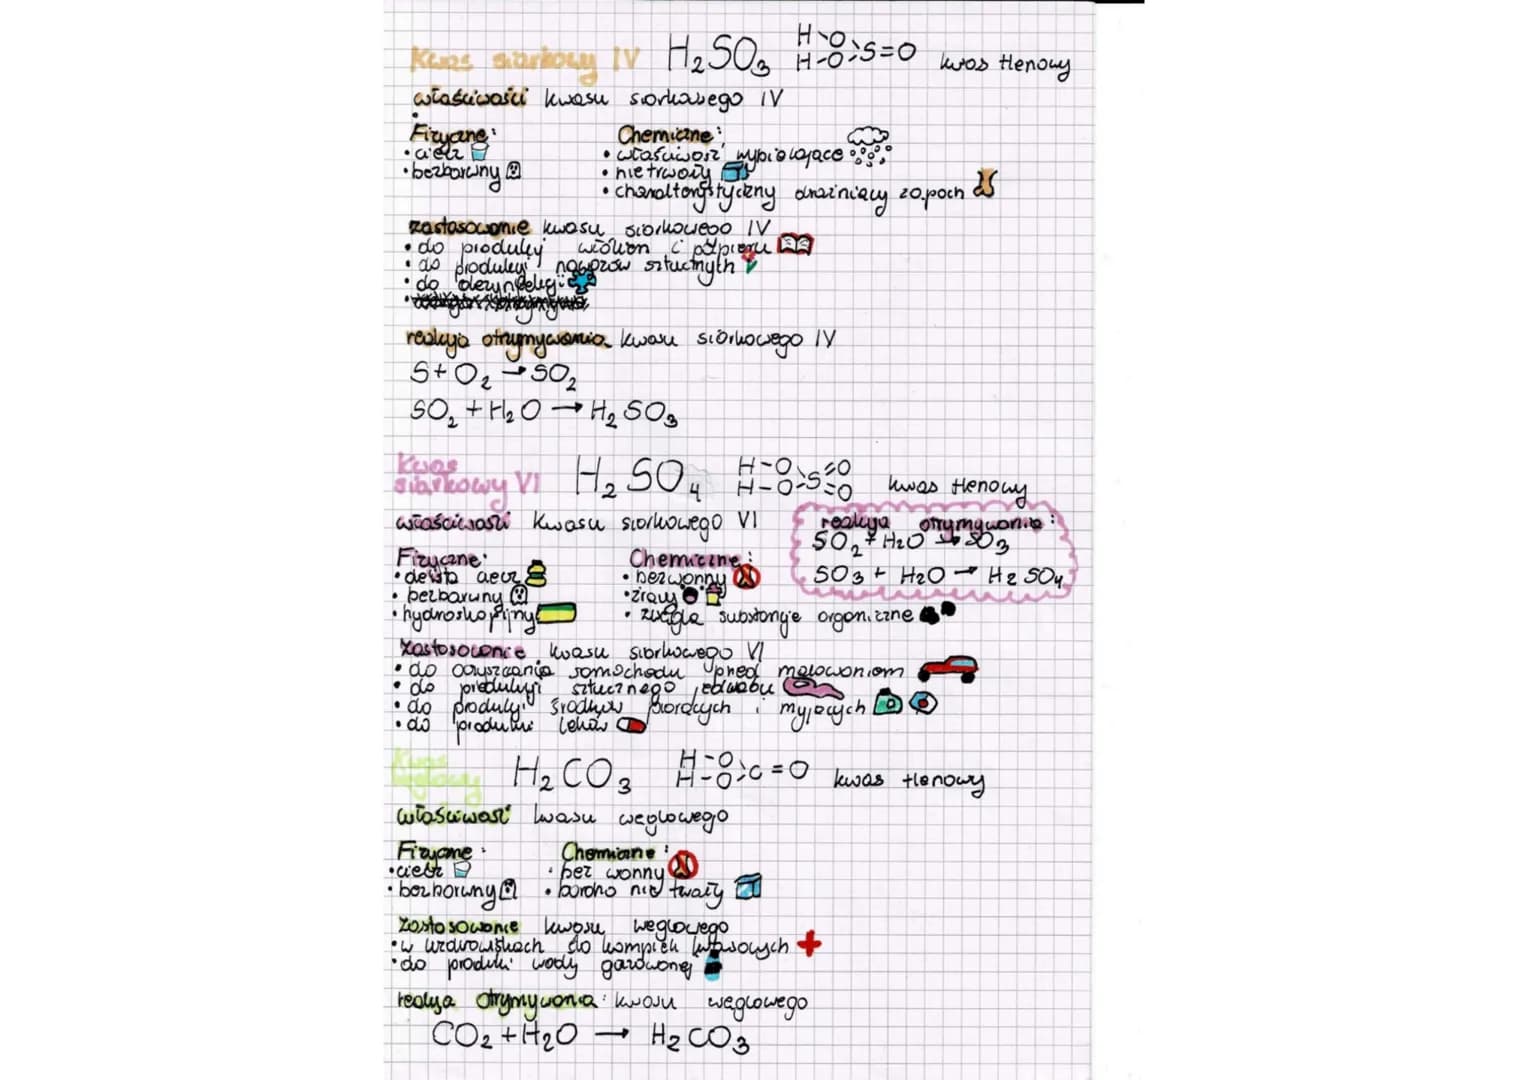 Kwas siarkowy IV H₂SO₃ H-O H-O S=O kwas tlenowy
właściwości kwasu siarkowego IV
Fizyczne: Chemiczne:
• ciecz • właściwość wybielające
• bezbarwny • nietrwały
• charakterystyczny drażniący zapach
zastosowanie kwasu siarkowego IV
• do produkcji włókien i papieru
• do produkcji nawozów sztucznych
• do dezynfekcji
reakcja otrzymywania kwasu siarkowego IV
S + O₂ → SO₂
SO₂ + H₂O → H₂SO₃
Kwas siarkowy VI H₂SO₄ H-O H-O S=O =O kwas tlenowy
właściwości kwasu siarkowego VI
reakcja otrzymywania:
SO₂ + H₂O → SO₃
SO₃ + H₂O → H₂SO₄
Fizyczne: Chemiczne:
• ciecz • bezwonny
• bezbarwny • żrący
• hydroskopijny • zwęgla substancje organiczne
Zastosowanie kwasu siarkowego VI
• do oczyszczania samochodu przed malowaniem
• do produkcji sztucznego jedwabiu
• do produkcji środków piorących i myjących
• do produkcji leków
Kwas węglowy H₂CO₃ H-O H-O C=O kwas tlenowy
właściwość kwasu węglowego
Fizyczne: Chemiczne:
• ciecz • bez wonny
• bezbarwny • bardzo nie trwały
Zastosowanie kwasu węglowego
• w uzdrowiskach do kąpieli kwasowych
• do produkcji wody gazowanej
reakcja otrzymywania: kwasu węglowego
CO₂ + H₂O → H₂CO₃